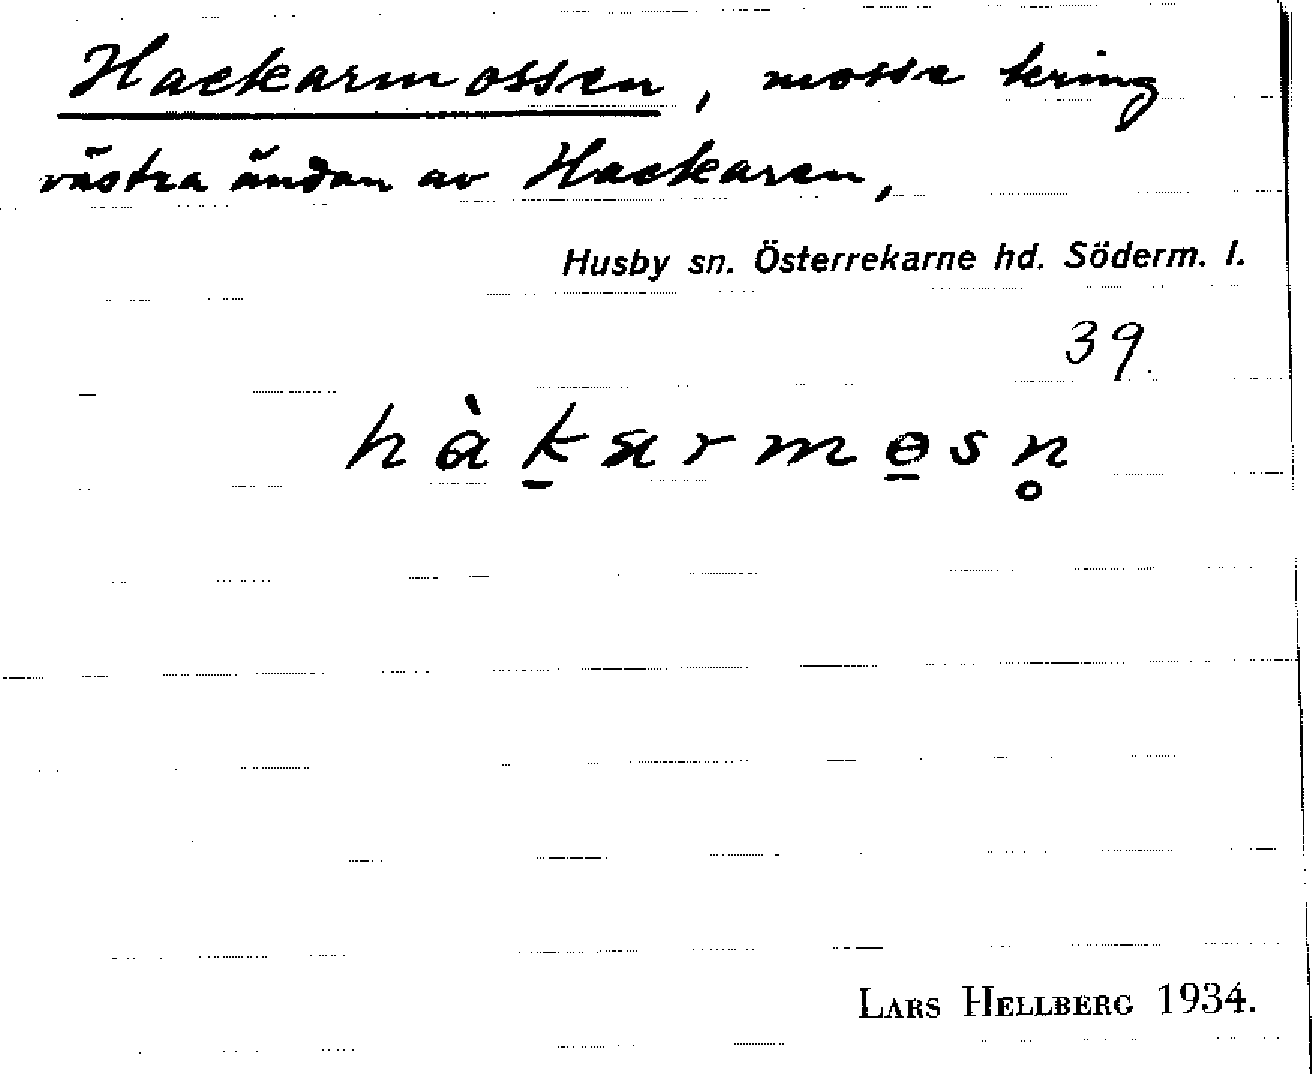 Hackarmossen, mosse kring
västra ändan av Hackaren,
Husby sn. Österrekarne hd. Söderm. l.
39.
hàk̲armo̲sn̥
LARS HELLBERG 1934.